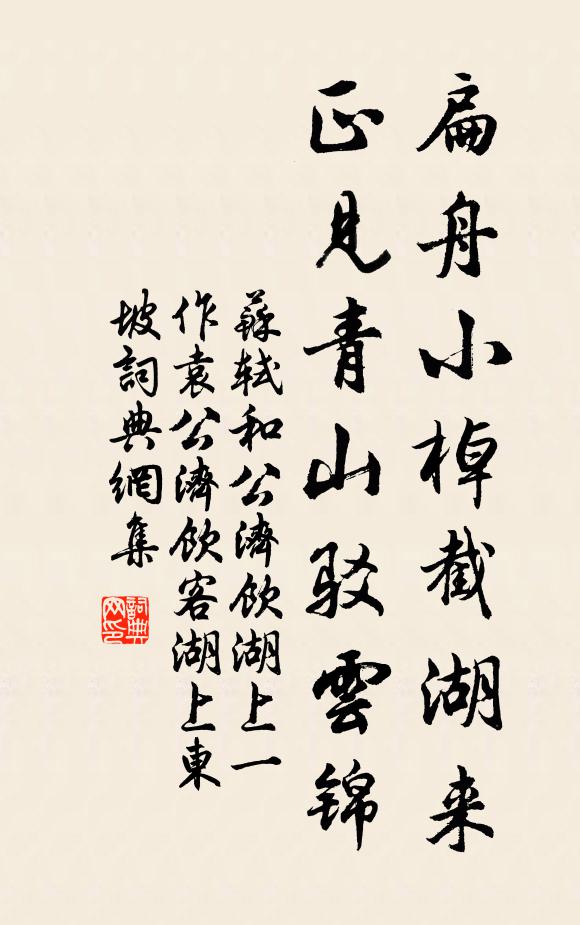 扁舟小棹截湖来
正见青山驳雲锦
蘇軾和公濟飲湖上一
作袁公濟飲客湖上東
坡詞典網集
詞典
网印